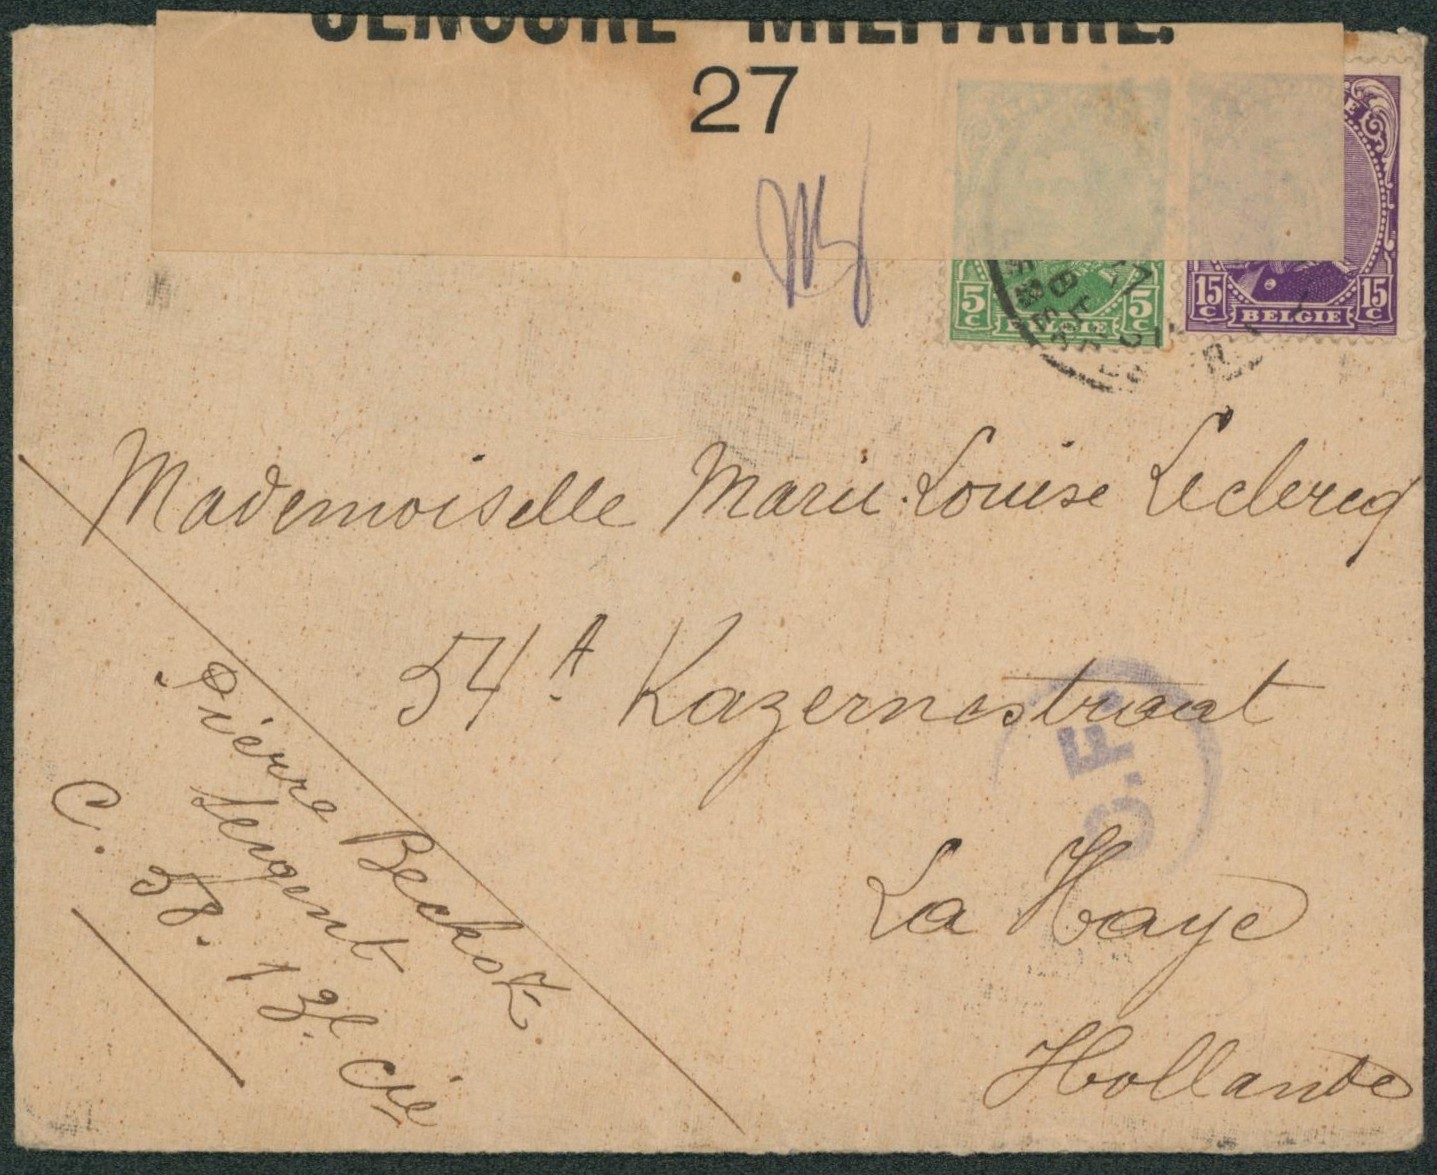 CENSURE MILITAIRE.
27
5c BELGIE 5c
15c BELGIE 15c
Mademoiselle Marie-Louise Leclercq
54A Kazernestraat
C.F.
La Haye
Hollande
Pierre Beckot
Sergent
C. 58. 13e Cie